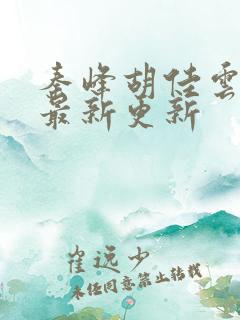 秦峰胡佳雲
最新更新
崔远少
未经同意禁止转载